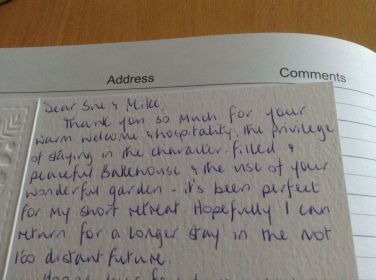 Address Comments
Dear Sue & Mike,
Thank you so much for your
warm welcome & hospitality, the privilege
of staying in the character filled &
peaceful Bakehouse & the use of your
wonderful garden - it's been perfect
for my short retreat. Hopefully I can
return for a longer stay in the not
too distant future.